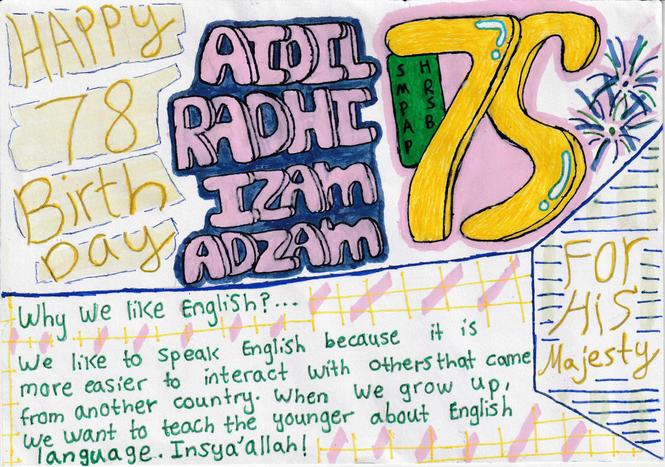 HAPPY
78
Birth
Day
AIDIL
RADHI
IZAM
ADZAM
SMPAP
HRSB
75
FOR
HiS
Majesty
Why We like English?...
We like to speak English because it is
more easier to interact with others that came
from another country. When we grow up,
we want to teach the younger about English
language. Insya'allah!